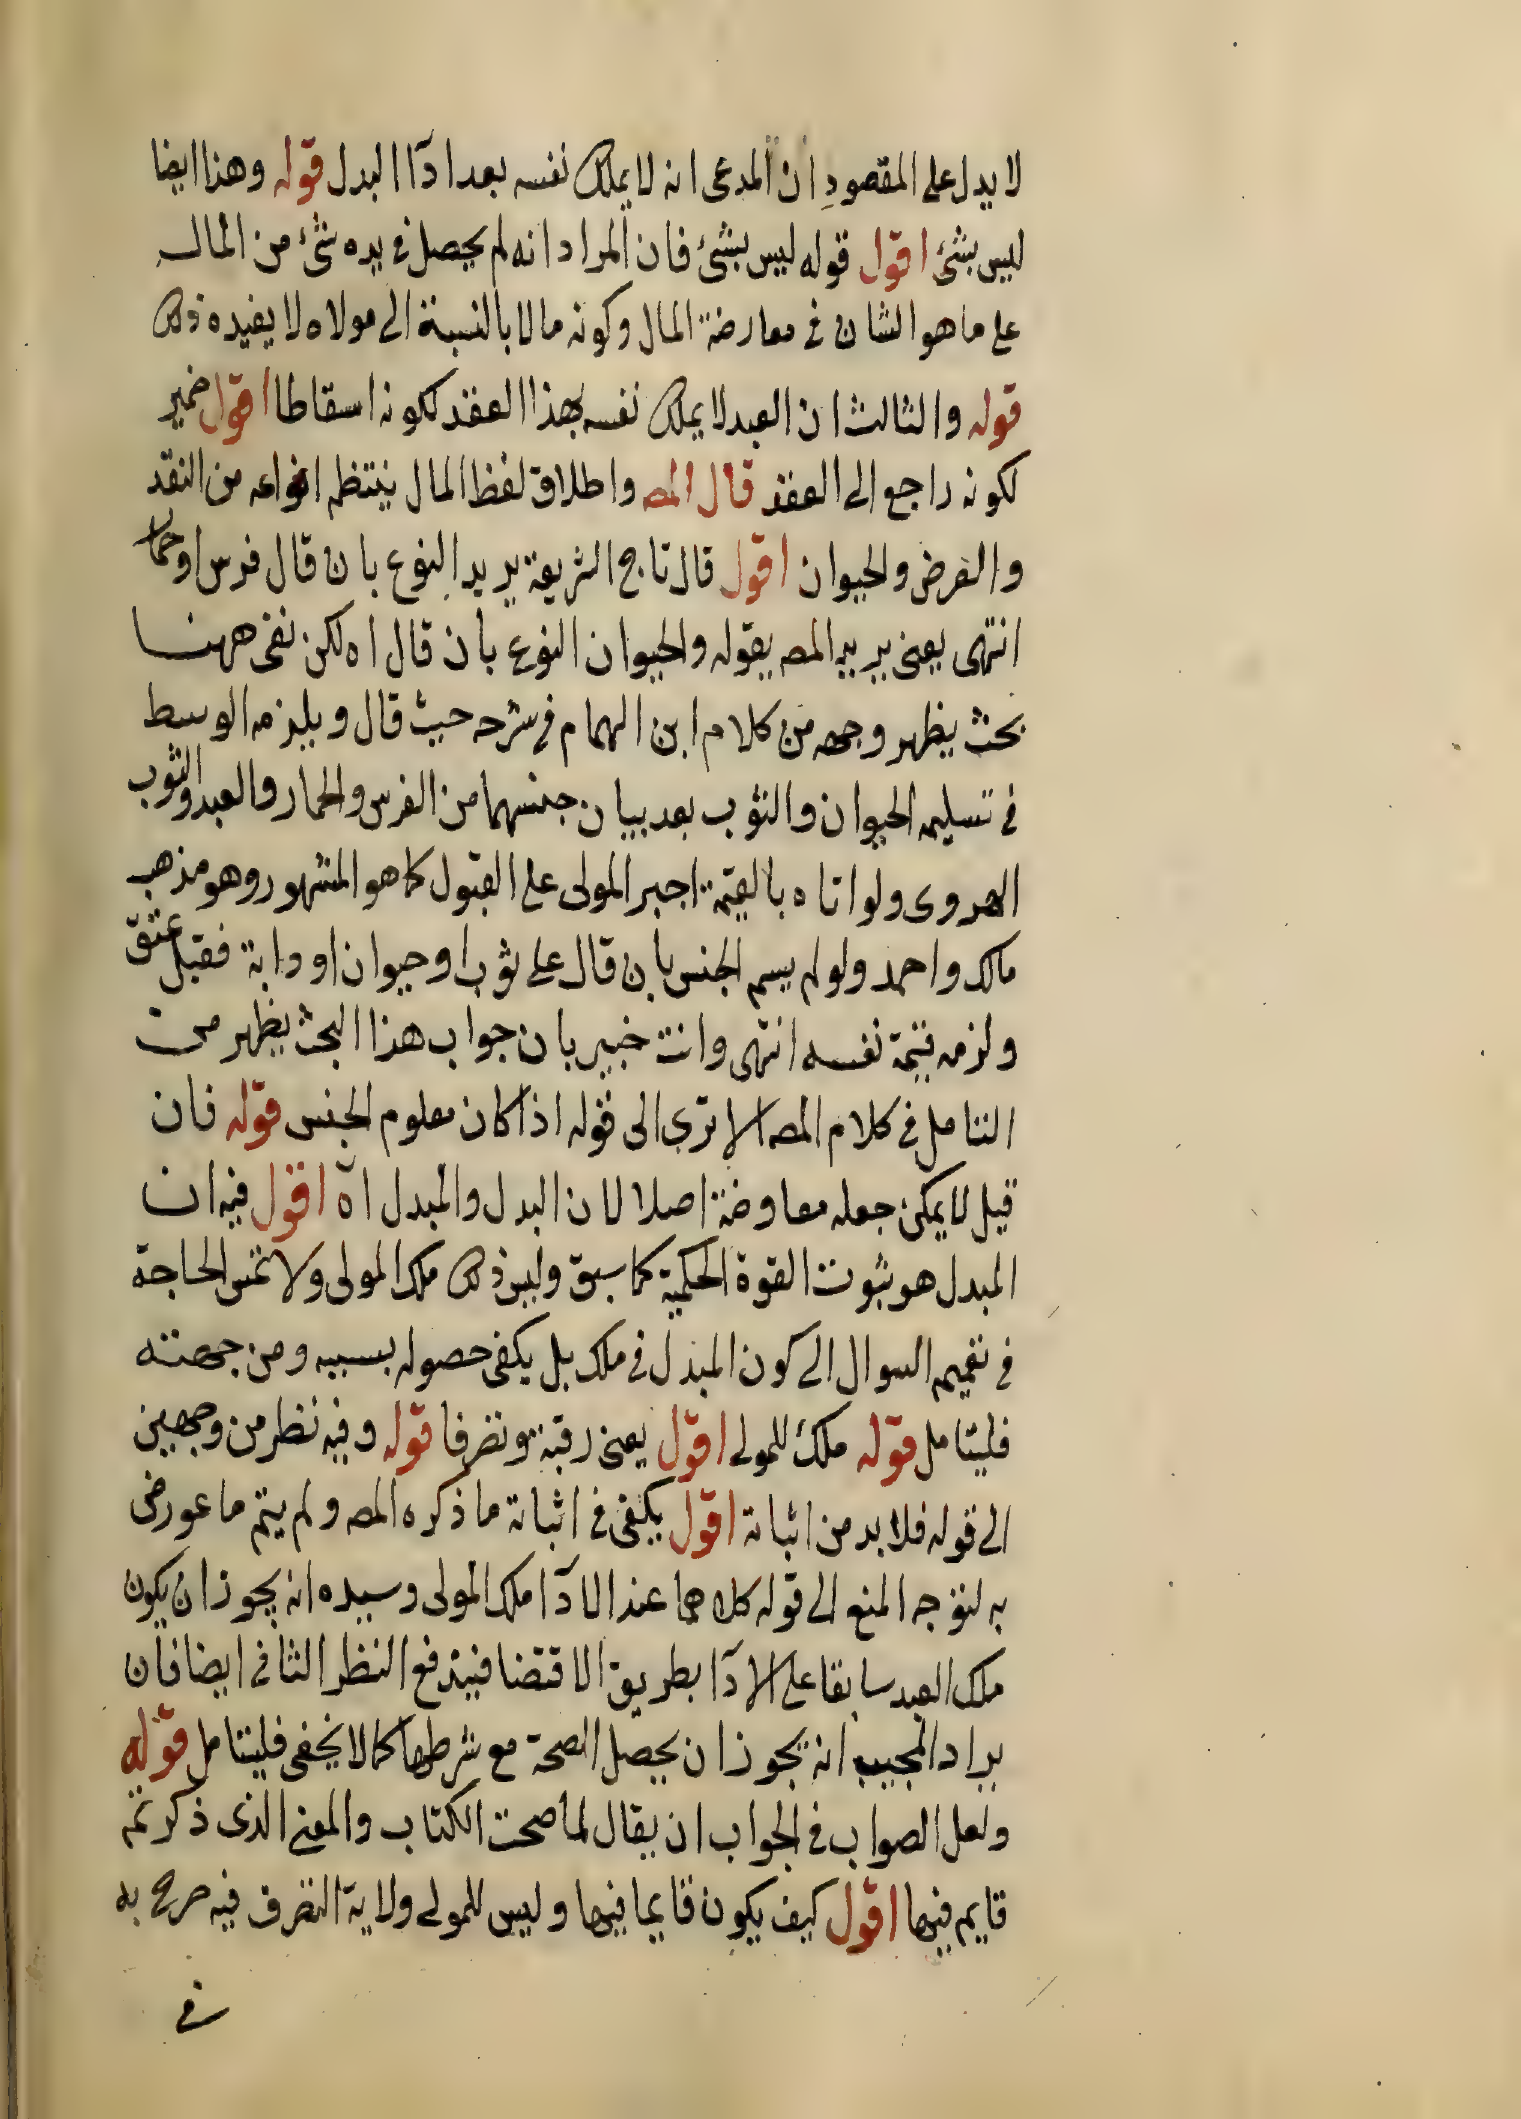 لا يدل على المقصود ان المدعى انه لا يملك نفسه بعد ادآ البدل قوله وهذا ايضا
ليس بشئ اقول قوله ليس بشئ فان المراد انه لم يحصل فى يده شئ من المال
على ما هو الشان فى معارضة المال وكونه مالا بالنسبة الى مولاه لا يفيده ذلك
قوله والثالث ان العبد لا يملك نفسه بهذا العقد لكونه اسقاطا اقول ضمير
لكونه راجع الى العقد قال المصـ واطلاق لفظ المال ينتظم انواعه من النقد
والعرض والحيوان اقول قال تاج الشريعة يريد النوع بان قال فرس او حمار
انتهى يعنى يريد المصـ بقوله والحيوان النوع بان قال اه لكن نفى ههنا
بحث يظهر وجهه من كلام ابن الهمام فى شرحه حيث قال ويلزمه الوسط
فى تسليم الحيوان والثوب بعد بيان جنسهما من الفرس والحمار والعبد والثوب
الهروى ولو اتاه بالقيمة اجبر المولى على القبول كما هو المشهور وهو مذهب
مالك واحمد ولو لم يسم الجنس بان قال على ثوب او حيوان او دابة فقبل عتق
ولزمه قيمة نفسه انتهى وانت خبير بان جواب هذا البحث يظهر من
التامل فى كلام المصـ الا ترى الى قوله اذا كان معلوم الجنس قوله فان
قيل لا يمكن جعله معاوضة اصلا لان البدل والمبدل اآه اقول فيه ان
المبدل هو ثبوت القوة الحكمية كما سبق وليس ذلك ملك المولى ولا تمس الحاجة
فى تتميم السوال الى كون المبدل فى ملك بل يكفى حصوله بسببه ومن جهته
فليتامل قوله ملك للمولى اقول يعنى رقبة وتصرفا قوله وفيه نظر من وجهين
الى قوله فلا بد من اثباته اقول يكفى فى اثباته ما ذكره المصـ ولم يتم ما عورض
به لتوجه المنع الى قوله كلاهما عند الادآ ملك المولى وسيده انه يجوز ان يكون
ملك العبد سابقا على الادآ بطريق الاقتضا فيندفع النظر الثانى ايضا فان
يراد المجيب انه يجوز ان يحصل الصحة مع شرطها كما لا يخفى فليتامل قوله
ولعل الصواب فى الجواب ان يقال لما صحت الكتاب والمعنى الذى ذكرتم
قايم فيها اقول كيف يكون قايما فيها وليس للمولى ولاية التصرف فيه صرح به
فى